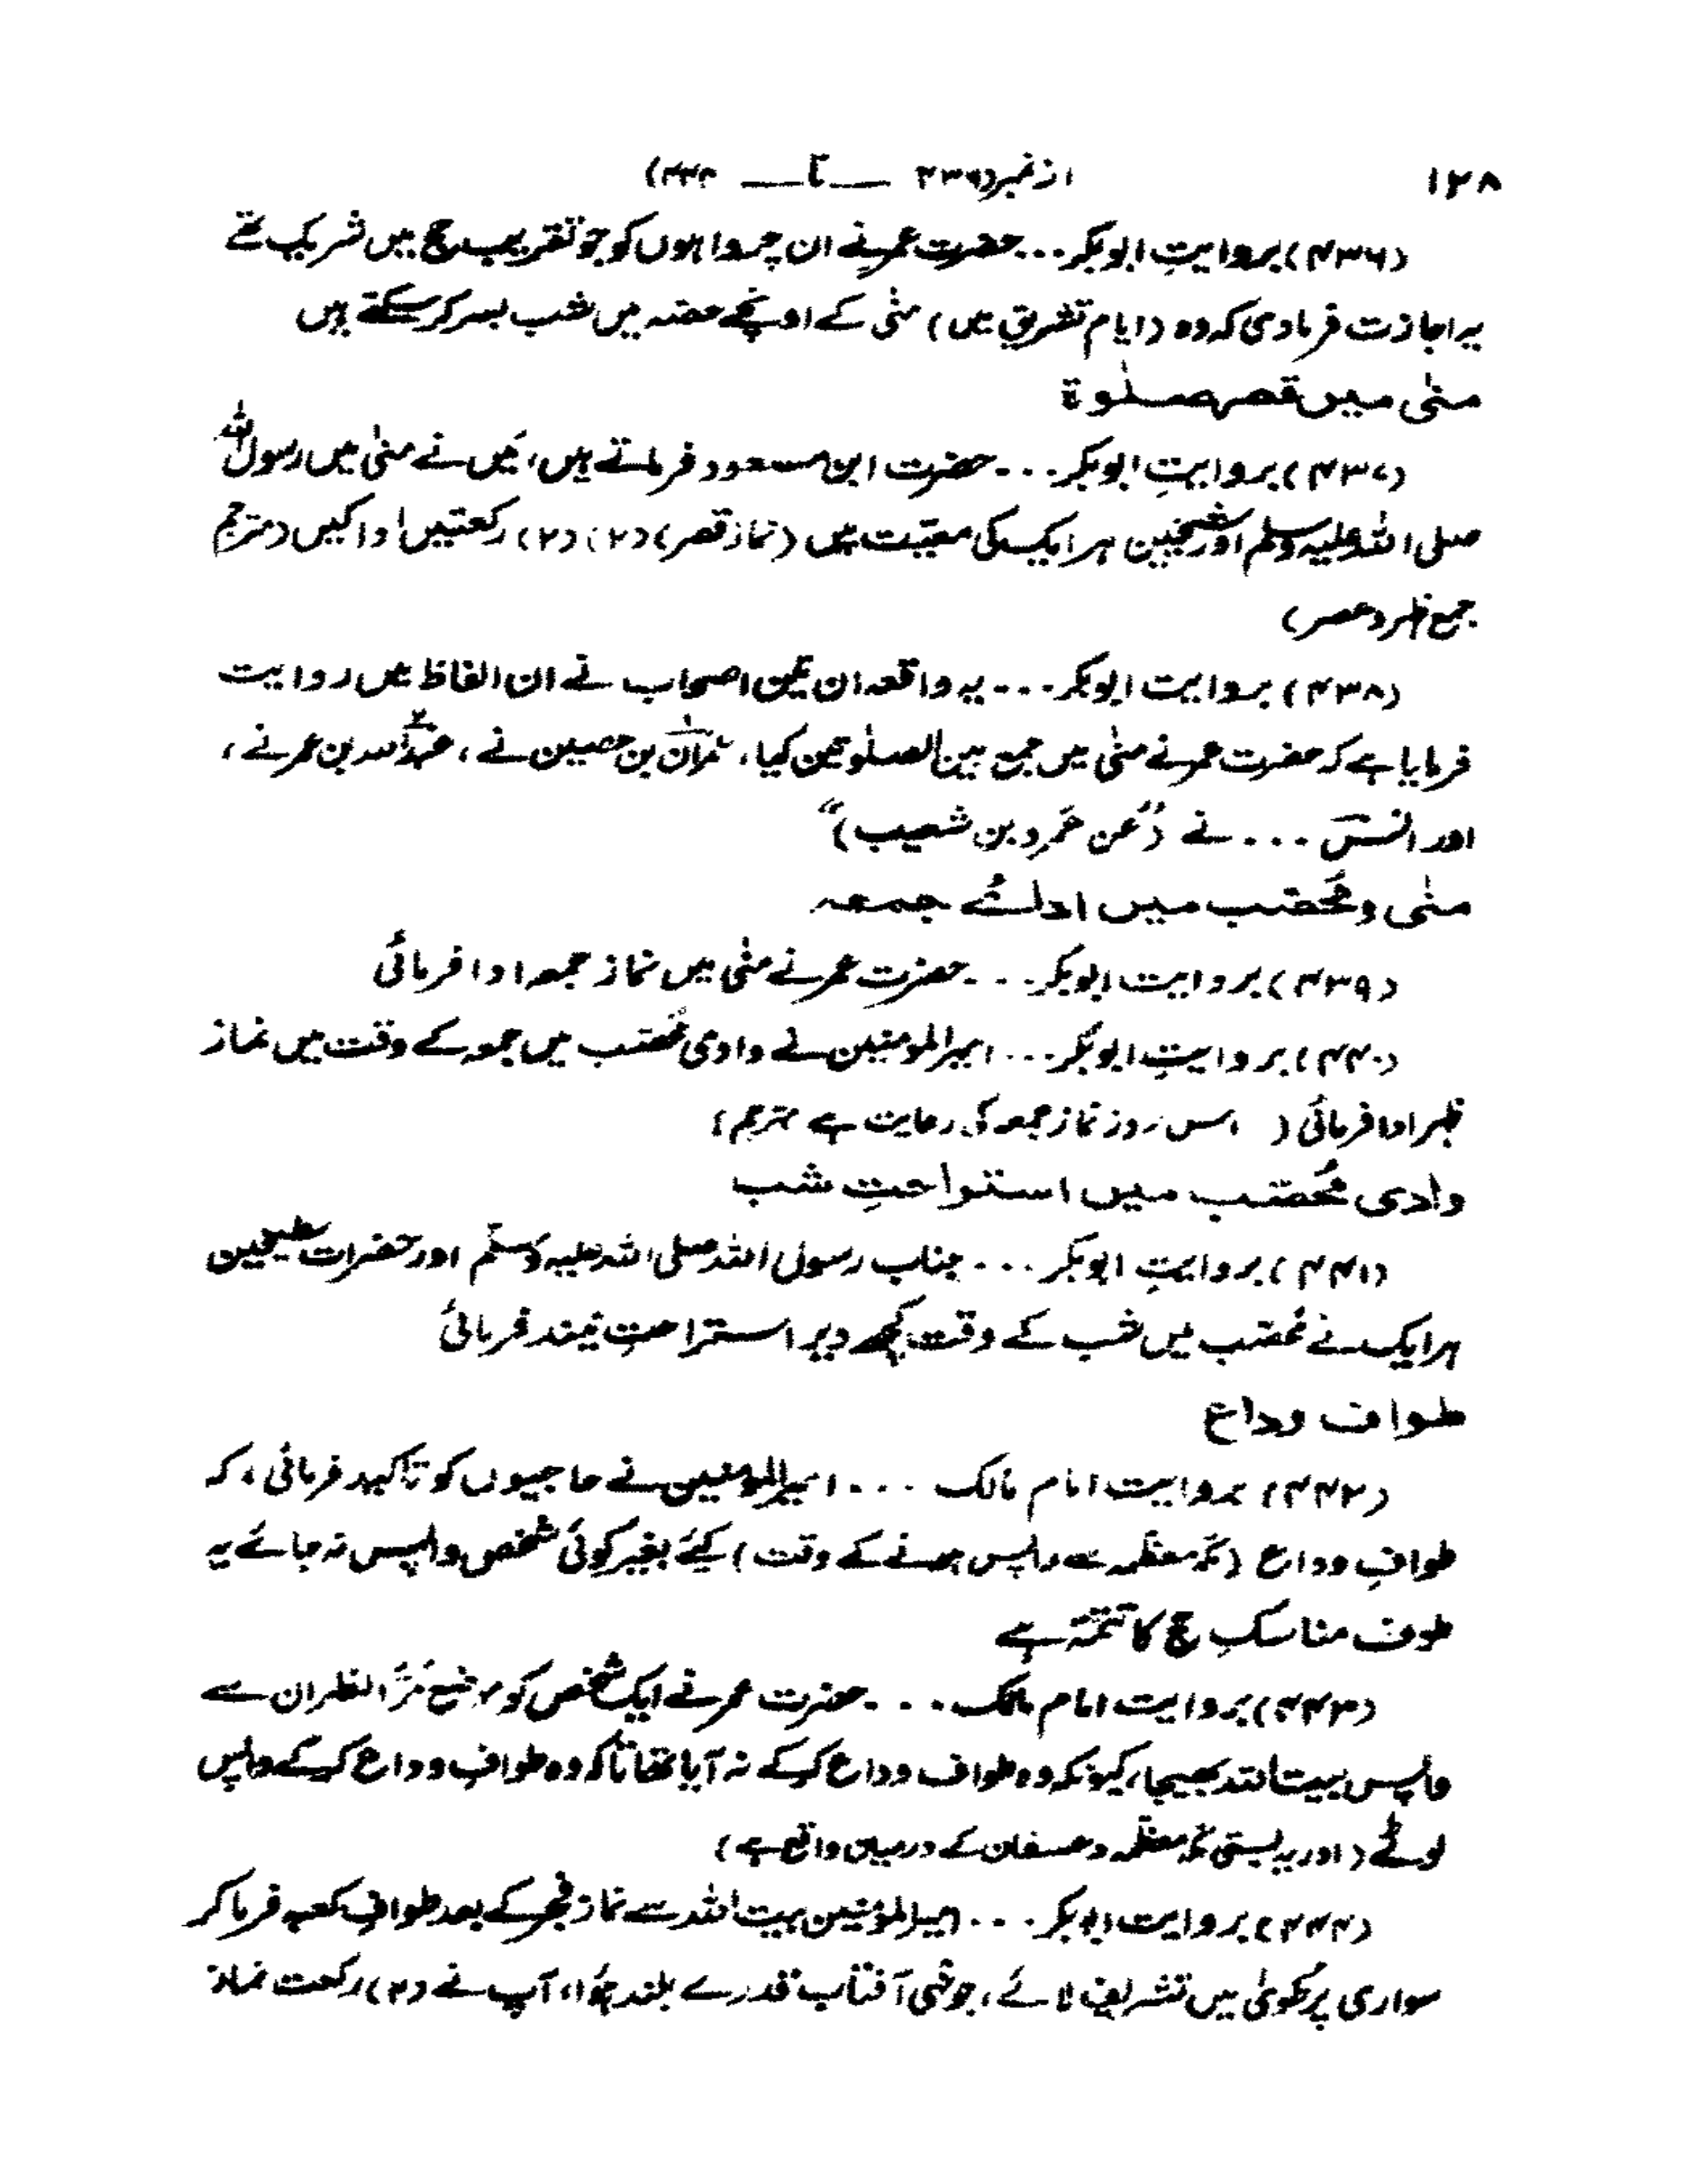 ۱۲۸ از نمبر (۴۳۶ ـــ تا ـــ ۴۴۴)
(۴۳۶) بروایتِ ابوبکر ... حضرت عمر نے ان چرواہوں کو جو تقریب حج میں شریک تھے
یہ اجازت فرمادی کہ وہ (ایام تشریق میں) منٰی کے اونچے حصہ میں شب بسر کر سکتے ہیں
منٰی میں قصر صلٰوۃ
(۴۳۷) بروایتِ ابوبکر ... حضرت ابن مسعود فرماتے ہیں، مَیں نے منٰی میں رسول اللہ
صلی اللہ علیہ وسلم اور شیخین ہر ایک کی معیّت میں (نماز قصر) (۲) (۲) رکعتیں ادا کیں (مترجم
جمع ظہر و عصر)
(۴۳۸) بروایت ابوبکر ... یہ واقعہ ان تین اصحاب نے ان الفاظ میں روایت
فرمایا ہے کہ حضرت عمر نے منٰی میں جمع بین الصلوٰتین کیا، عمران بن حصین نے، عبداللہ بن عمر نے،
اور انس ... نے (”عن عمرو بن شعیب)“
منٰی و مُحصّب میں ادائے جمعہ
(۴۳۹) بروایت ابوبکر ... حضرت عمر نے منٰی میں نماز جمعہ ادا فرمائی
(۴۴۰) بروایتِ ابوبکر ... امیرالمومنین نے وادی مُحصّب میں جمعہ کے وقت میں نماز
ظہر ادا فرمائی ( اس روز نماز جمعہ کی رعایت ہے مترجم)
وادی مُحصّب میں استراحتِ شب
(۴۴۱) بروایتِ ابوبکر ... جناب رسول اللہ صلی اللہ علیہ وسلم اور حضرات شیخین
ہر ایک نے مُحصّب میں شب کے وقت کچھ دیر استراحتِ نیند فرمائی
طواف وداع
(۴۴۲) بروایت امام مالک ... امیرالمومنین نے حاجیوں کو تاکید فرمائی، کہ
طوافِ وداع (مکہ معظمہ سے واپس ہونے کے وقت) کیے بغیر کوئی شخص واپس نہ جائے یہ
طوف مناسکِ حج کا تتمّہ ہے
(۴۴۳) بروایت امام مالک ... حضرت عمر نے ایک شخص کو موضع مَرّ الظہران سے
واپس بیت اللہ بھیجا، کیونکہ وہ طواف وداع کر کے نہ آیا تھا تاکہ وہ طوافِ وداع کر کے واپس
لوٹے (اور یہ بستی مکہ معظمہ و عسفان کے درمیان واقع ہے)
(۴۴۴) بروایت ابوبکر ... امیرالمؤمنین بیت اللہ سے نماز فجر کے بعد طوافِ کعبہ فرما کر
سواری پر طُویٰ میں تشریف لائے، جونہی آفتاب قدرے بلند ہوا، آپ نے (۲) رکعت نماز